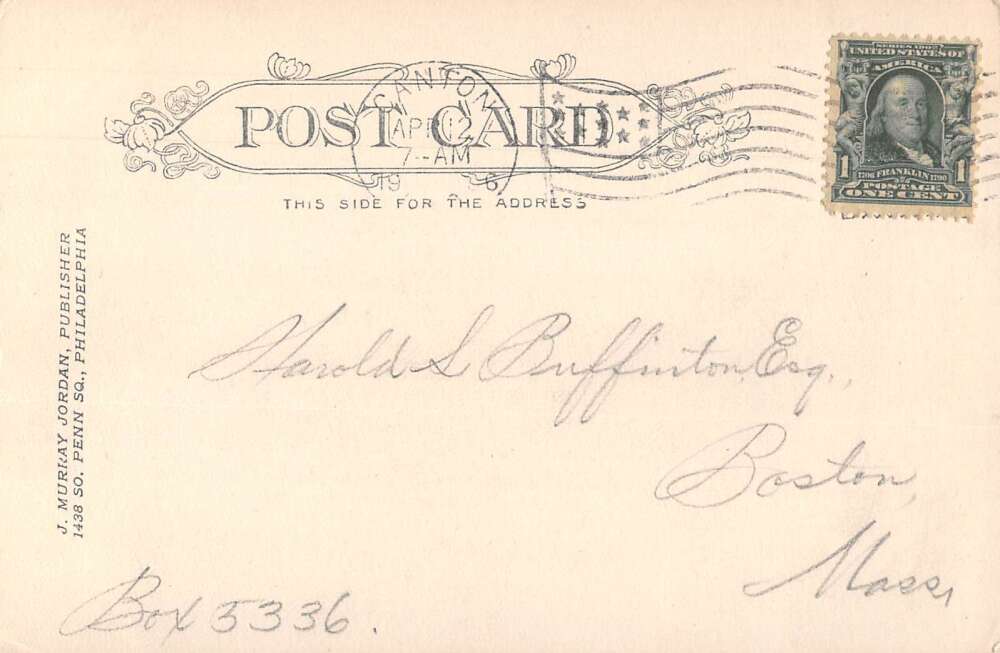 POST CARD
THIS SIDE FOR THE ADDRESS
CANTON
APR 12
7--AM
19 6
SERIES 1902
UNITED STATES OF
AMERICA
1 1706 FRANKLIN 1790 1
POSTAGE
ONE CENT
J. MURRAY JORDAN, PUBLISHER
1438 SO. PENN SQ., PHILADELPHIA
Harold S Buffinton, Esq.,
Boston,
Mass,
Box 5336.